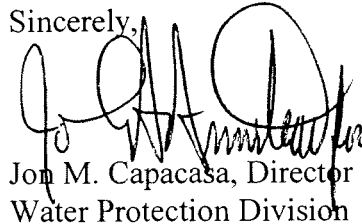 Sincerely,
Jon M. Capacasa, Director
Water Protection Division